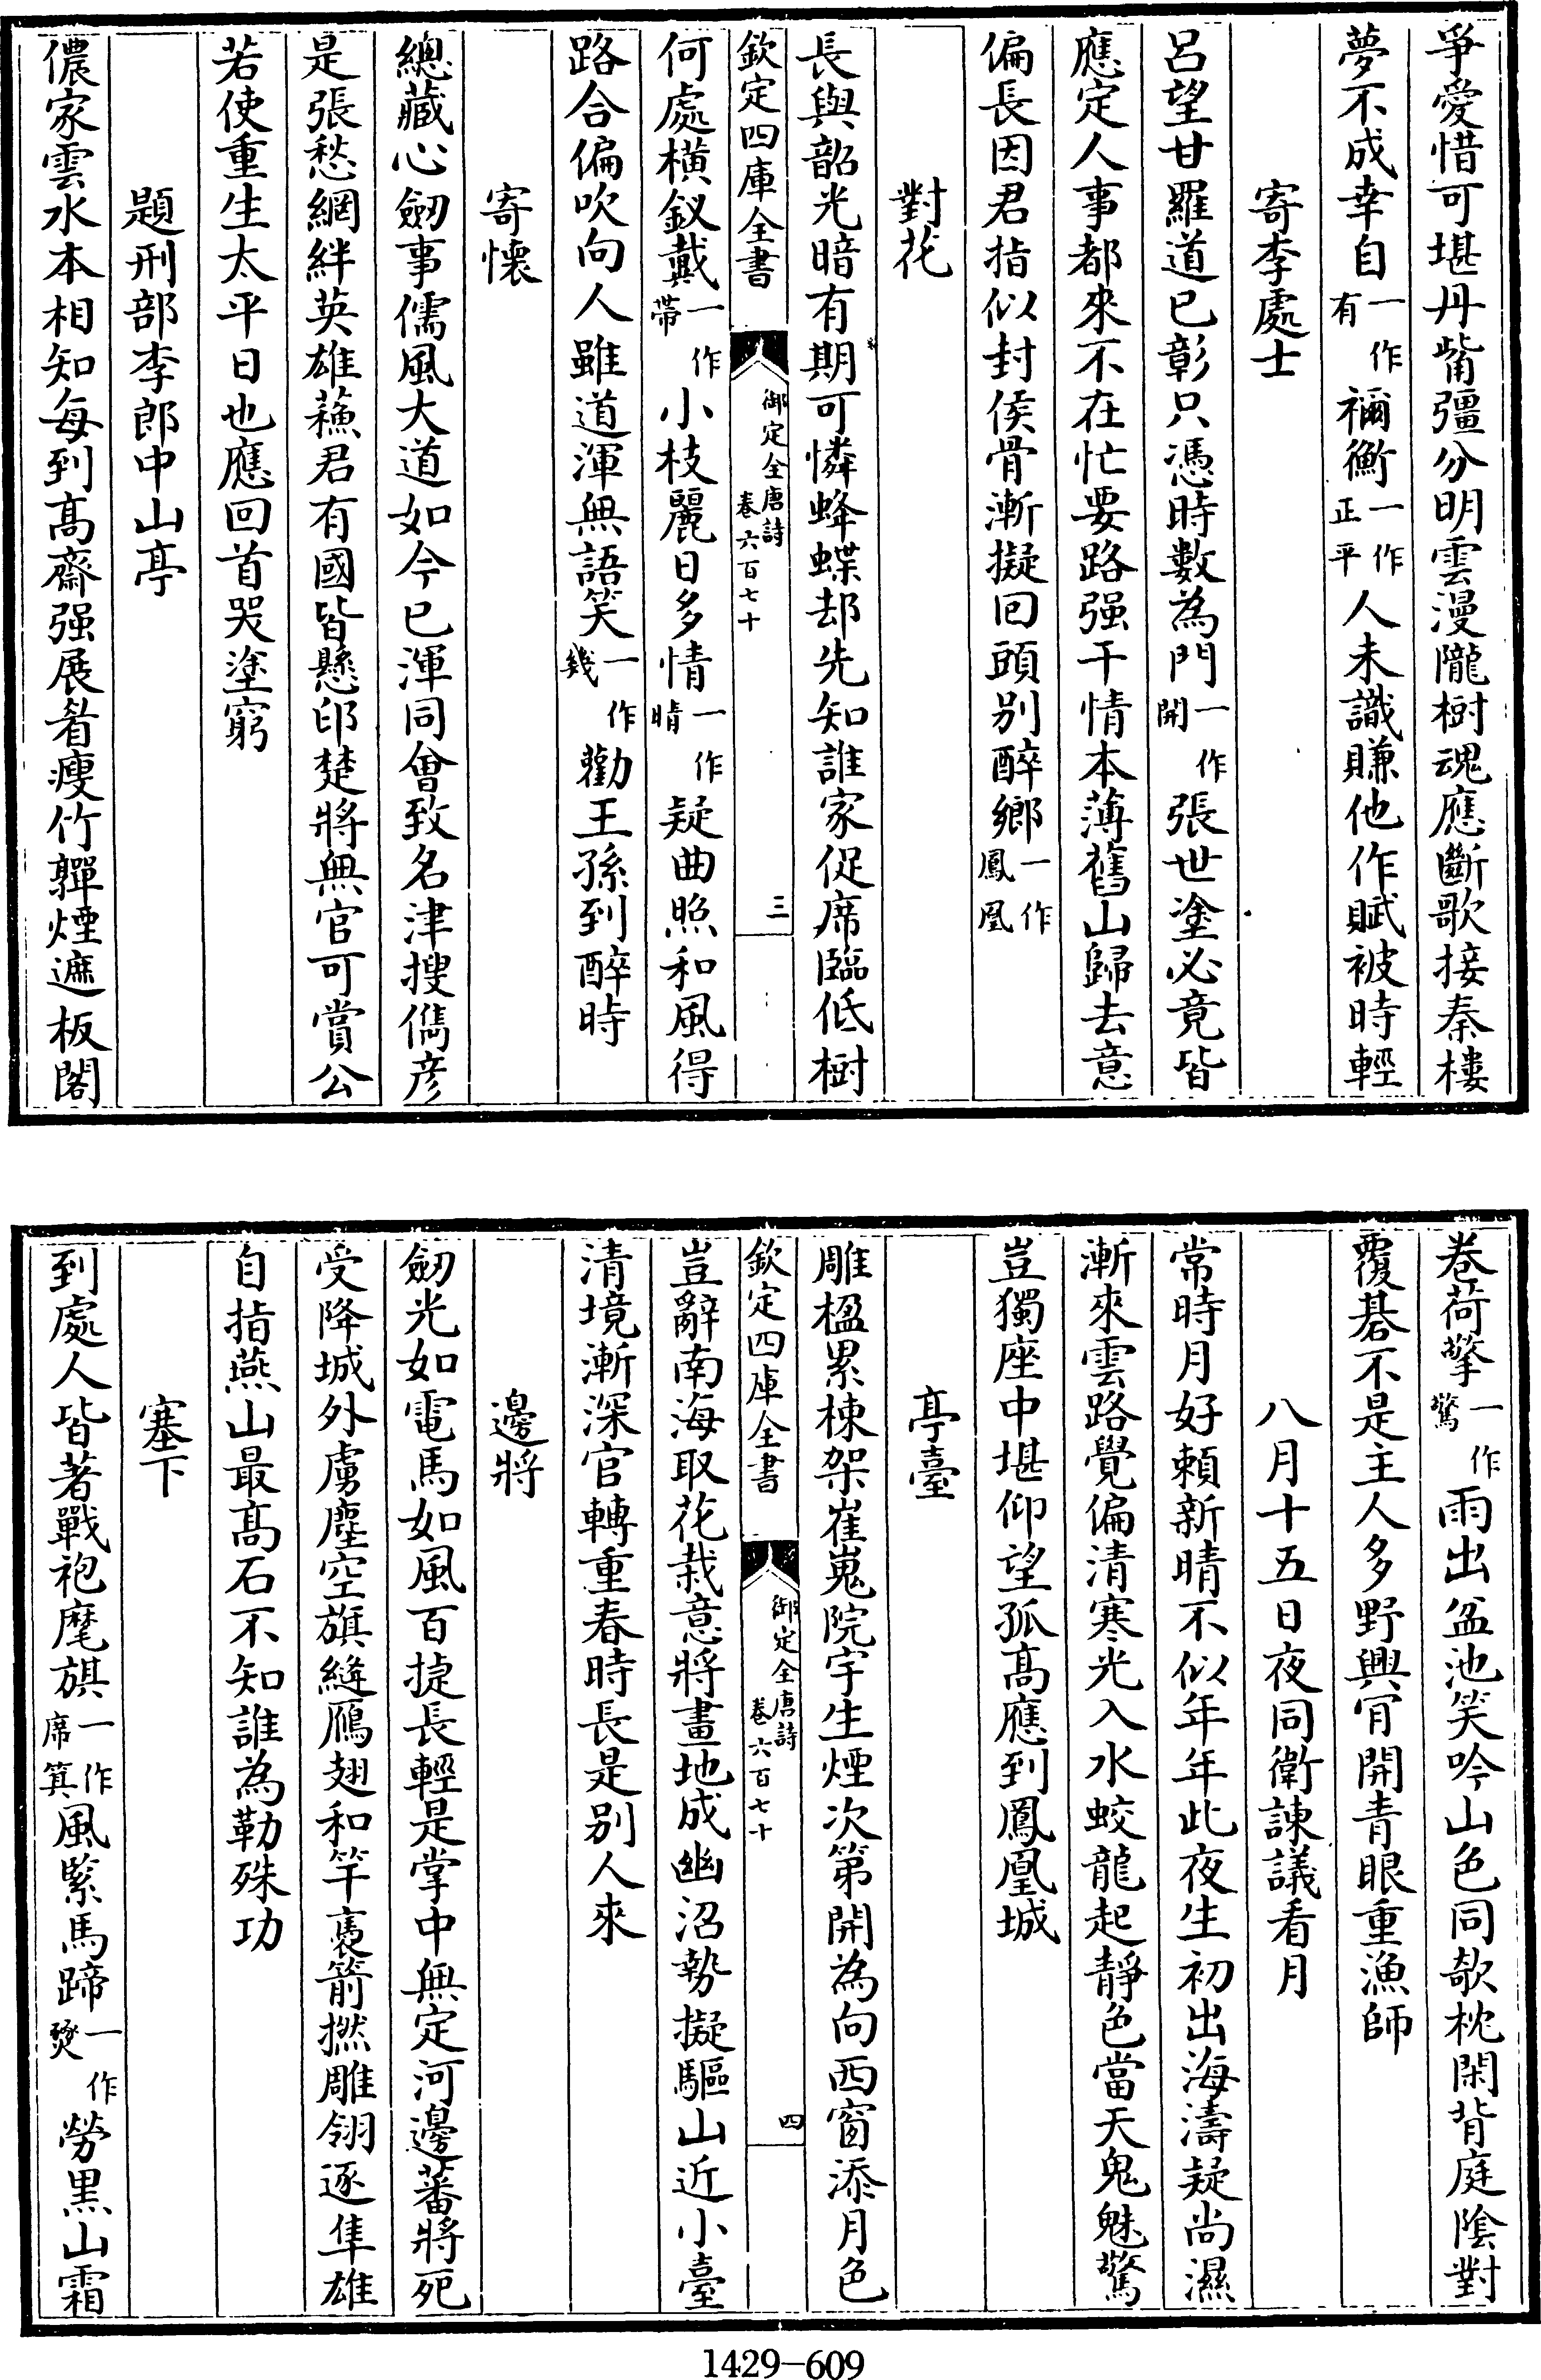 爭愛惜可堪丹觜彊分明雲漫隴樹魂應斷歌接秦樓
夢不成幸自一作有禰衡一作正平人未識賺他作賦被時輕
寄李處士
呂望甘羅道已彰只憑時數為門一作開張世塗必竟皆
應定人事都來不在忙要路强干情本薄舊山歸去意
偏長因君指似封侯骨漸擬回頭别醉鄉一作鳳凰
對花
長與韶光暗有期可憐蜂蝶却先知誰家促席臨低樹
欽定四庫全書
御定全唐詩
卷六百七十
三
何處橫釵戴一作帶小枝麗日多情一作晴疑曲照和風得
路合偏吹向人雖道渾無語笑一作幾勸王孫到醉時
寄懷
總藏心劒事儒風大道如今已渾同會致名津搜儁彦
是張愁網絆英雄蘓君有國皆懸印楚將無官可賞公
若使重生太平日也應回首哭塗窮
題刑部李郎中山亭
儂家雲水本相知每到髙齋强展眉瘦竹嚲煙遮板閣
卷荷擎一作驚雨出盆池笑吟山色同欹枕閑背庭陰對
覆碁不是主人多野興肎開青眼重漁師
八月十五日夜同衛諫議看月
常時月好頼新晴不似年年此夜生初出海濤疑尚濕
漸來雲路覺偏清寒光入水蛟龍起靜色當天鬼魅驚
豈獨座中堪仰望孤髙應到鳳凰城
亭臺
雕楹累棟架崔嵬院宇生煙次第開為向西窗添月色
欽定四庫全書
御定全唐詩
卷六百七十
四
豈辭南海取花栽意將畫地成幽沼勢擬驅山近小臺
清境漸深官轉重春時長是别人來
邊將
劒光如電馬如風百捷長輕是掌中無定河邊蕃將死
受降城外虜塵空旗縫鴈翅和竿褭箭撚雕翎逐隼雄
自指燕山最髙石不知誰為勒殊功
塞下
到處人皆著戰袍麾旗一作席箕風緊馬蹄一作燹勞黑山霜
1429-609